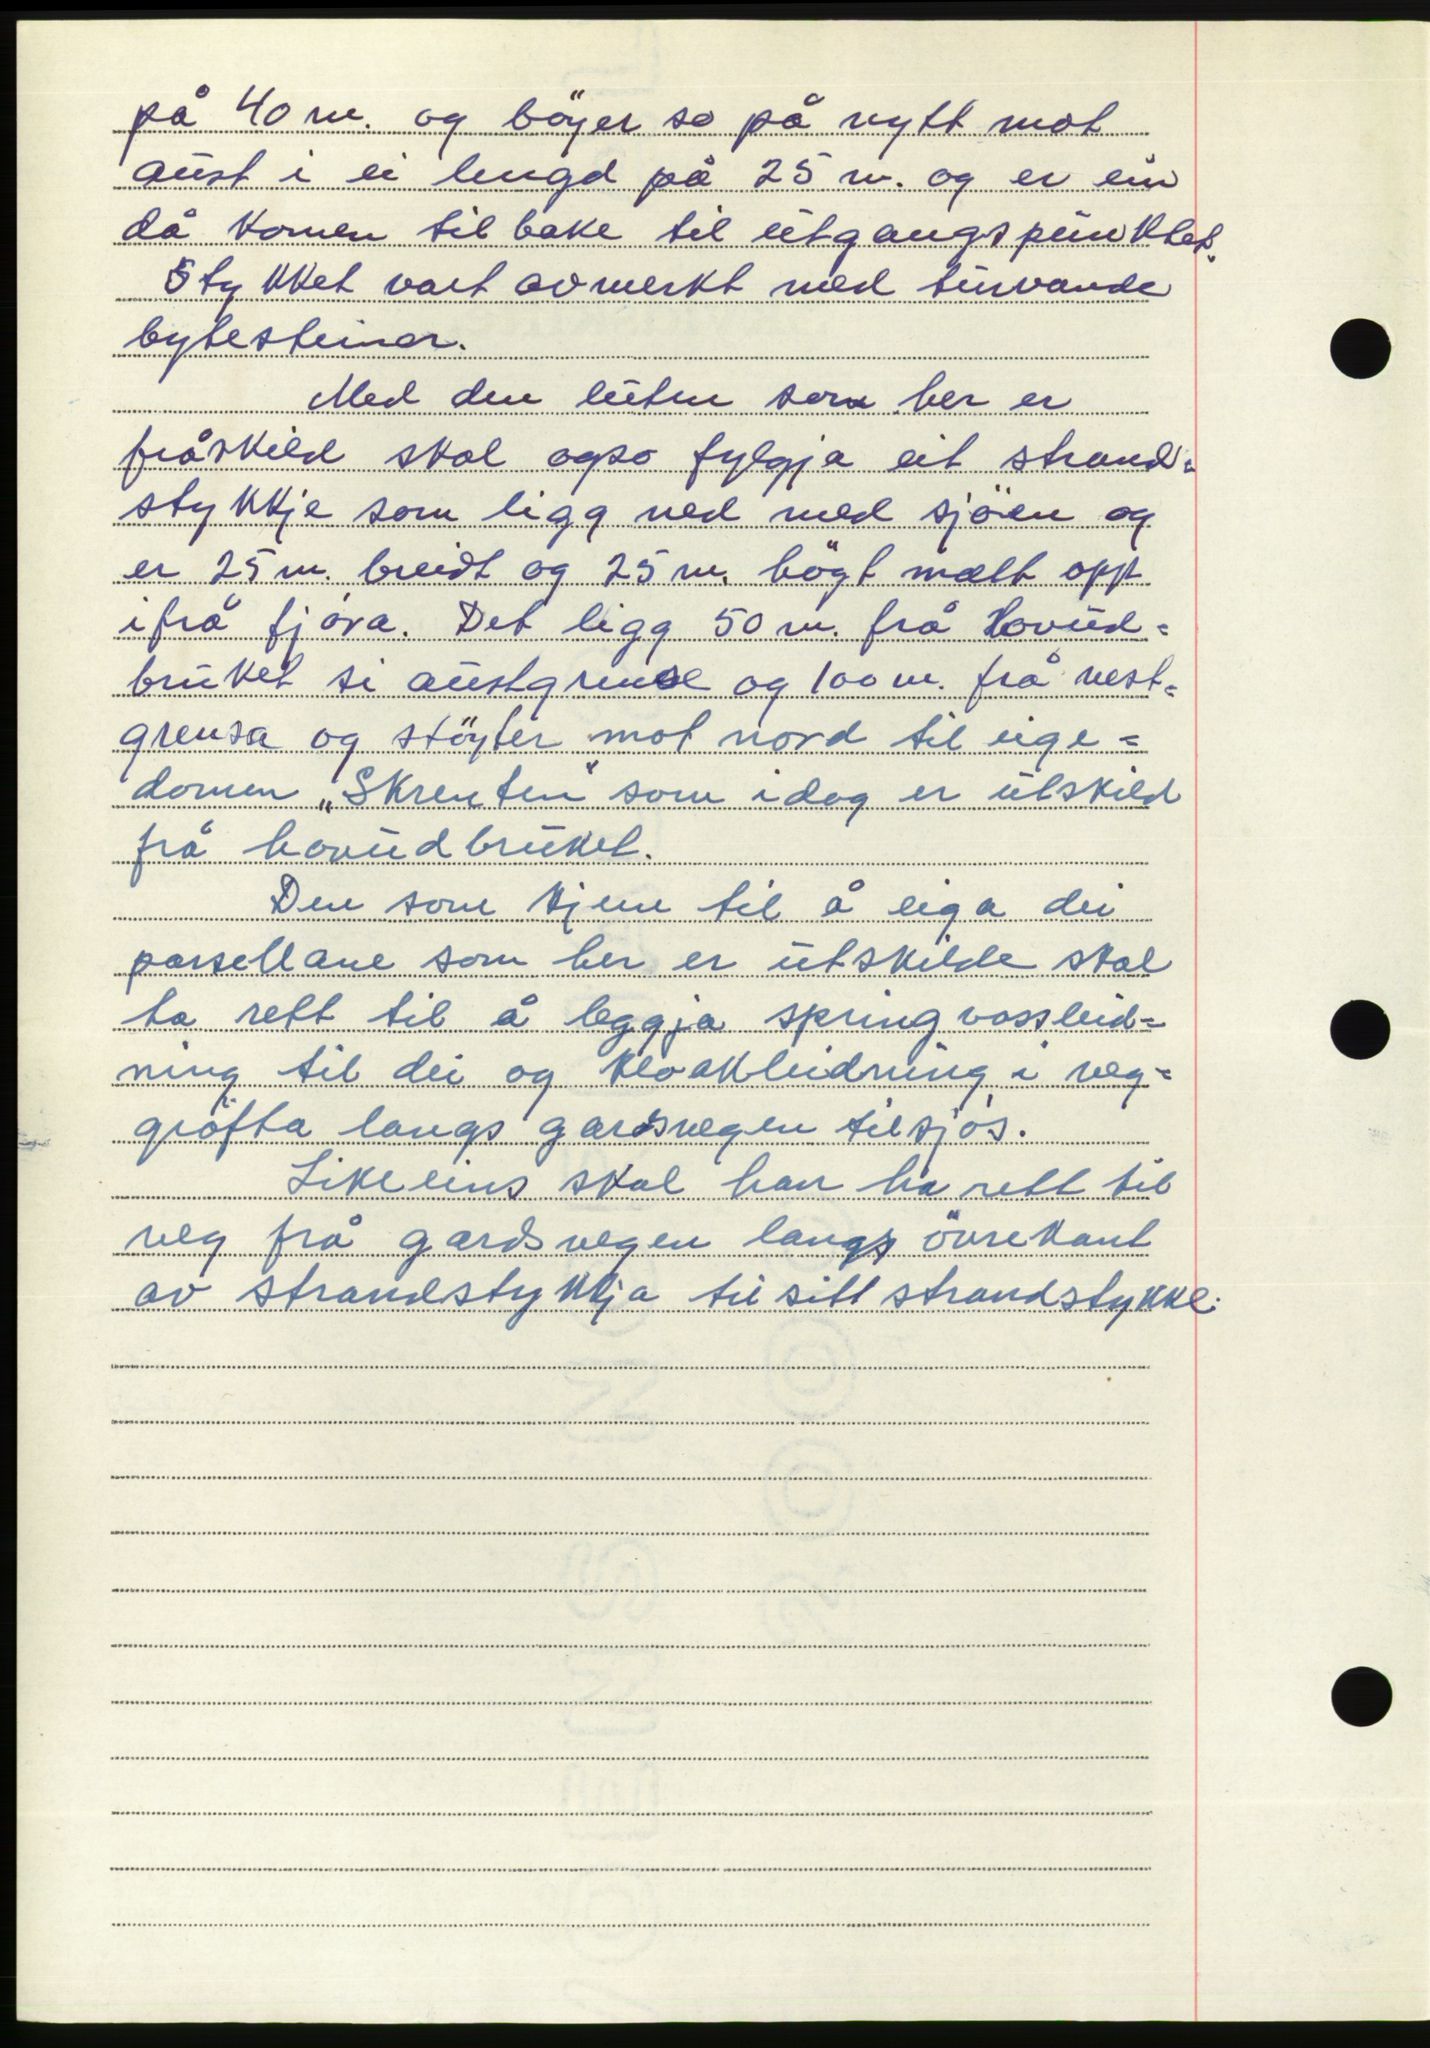 på 40 m. og böyer so på nytt mot
aust i ei lengd på 25 m. og er ein
då komen tilbake til utgangspunktet.
Stykket vart avmerkt med turvande
bytesteinar.
Med den luten som her er
fråskild skal også fylgja eit strand=
stykkje som ligg ned med sjöen og
er 25 m. breidt og 25 m. högt mælt opp
ifrå fjöra. Det ligg 50 m. frå Hovud=
bruket si austgrense og 100 m. frå vest=
grensa og stöyter mot nord til eige=
domen „Skrenten" som idag er utskild
frå hovudbruket.
Den som kjem til å eiga dei
parsellane som her er utskilde skal
ha rett til å leggja springvassleid=
ning til dei og kloakkleidning i veg=
gröfta langs gardsvegen til sjös.
Likeleins skal han ha rett til
veg frå gardsvegen langs övrekant
av strandstykkja til sitt strandstykke.